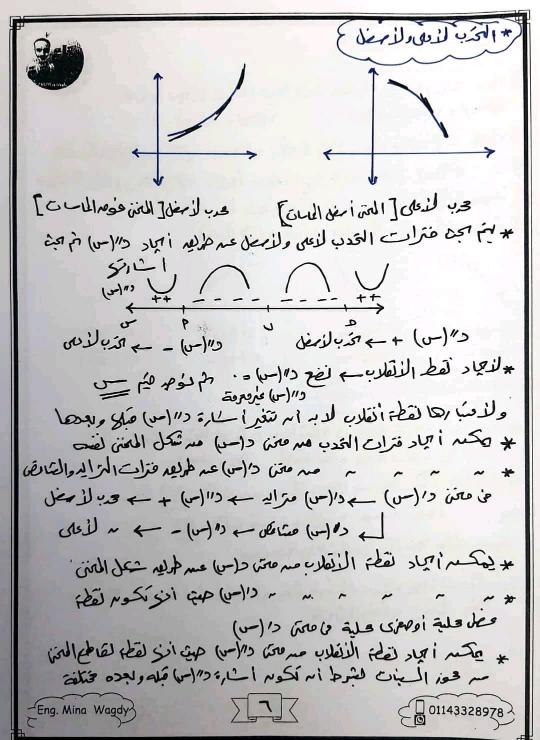 * التحدب لأعلى ولأسفل
محدب لأعلى [المنحنى أسفل المماسات]
محدب لأسفل [المنحنى فوق المماسات]
* يتم بحث فترات التحدب لأعلى ولأسفل عن طريق أيجاد د''(س) ثم بحث
أشارتها
د''(س)
++ - - - - - - - - - - ++
س
د''(س) + ← تحدب لأسفل
د''(س) - ← تحدب لأعلى
* لأيجاد نقط الأنقلاب ← نضع د''(س) = ٠ ثم نوجد قيم س
د''(س) غير معرفة
ولأعتبارها نقطة أنقلاب لابد أن تتغير أشارة د''(س) قبلها وبعدها
* يمكن أيجاد فترات التحدب من منحنى د(س) من شكل المنحنى نفسه
* " " " " من منحنى د'(س) عن طريق فترات التزايد والتناقص
فى منحنى د'(س) ← د'(س) متزايد ← د''(س) + ← محدب لأسفل
د'(س) متناقص ← د''(س) - ← " لأعلى
* يمكن أيجاد نقطة الأنقلاب من منحنى د(س) عن طريق شكل المنحنى
* " " " " " د'(س) حيث أنها تكون نقطة
عظمى محلية أو صغرى محلية فى منحنى د'(س)
* يمكن أيجاد نقطة الأنقلاب من منحنى د''(س) حيث أنها نقطة تقاطع المنحنى
مع محور السينات بشرط أن تكون أشارة د''(س) قبله وبعده مختلفة
Eng. Mina Wagdy
٦
01143328978